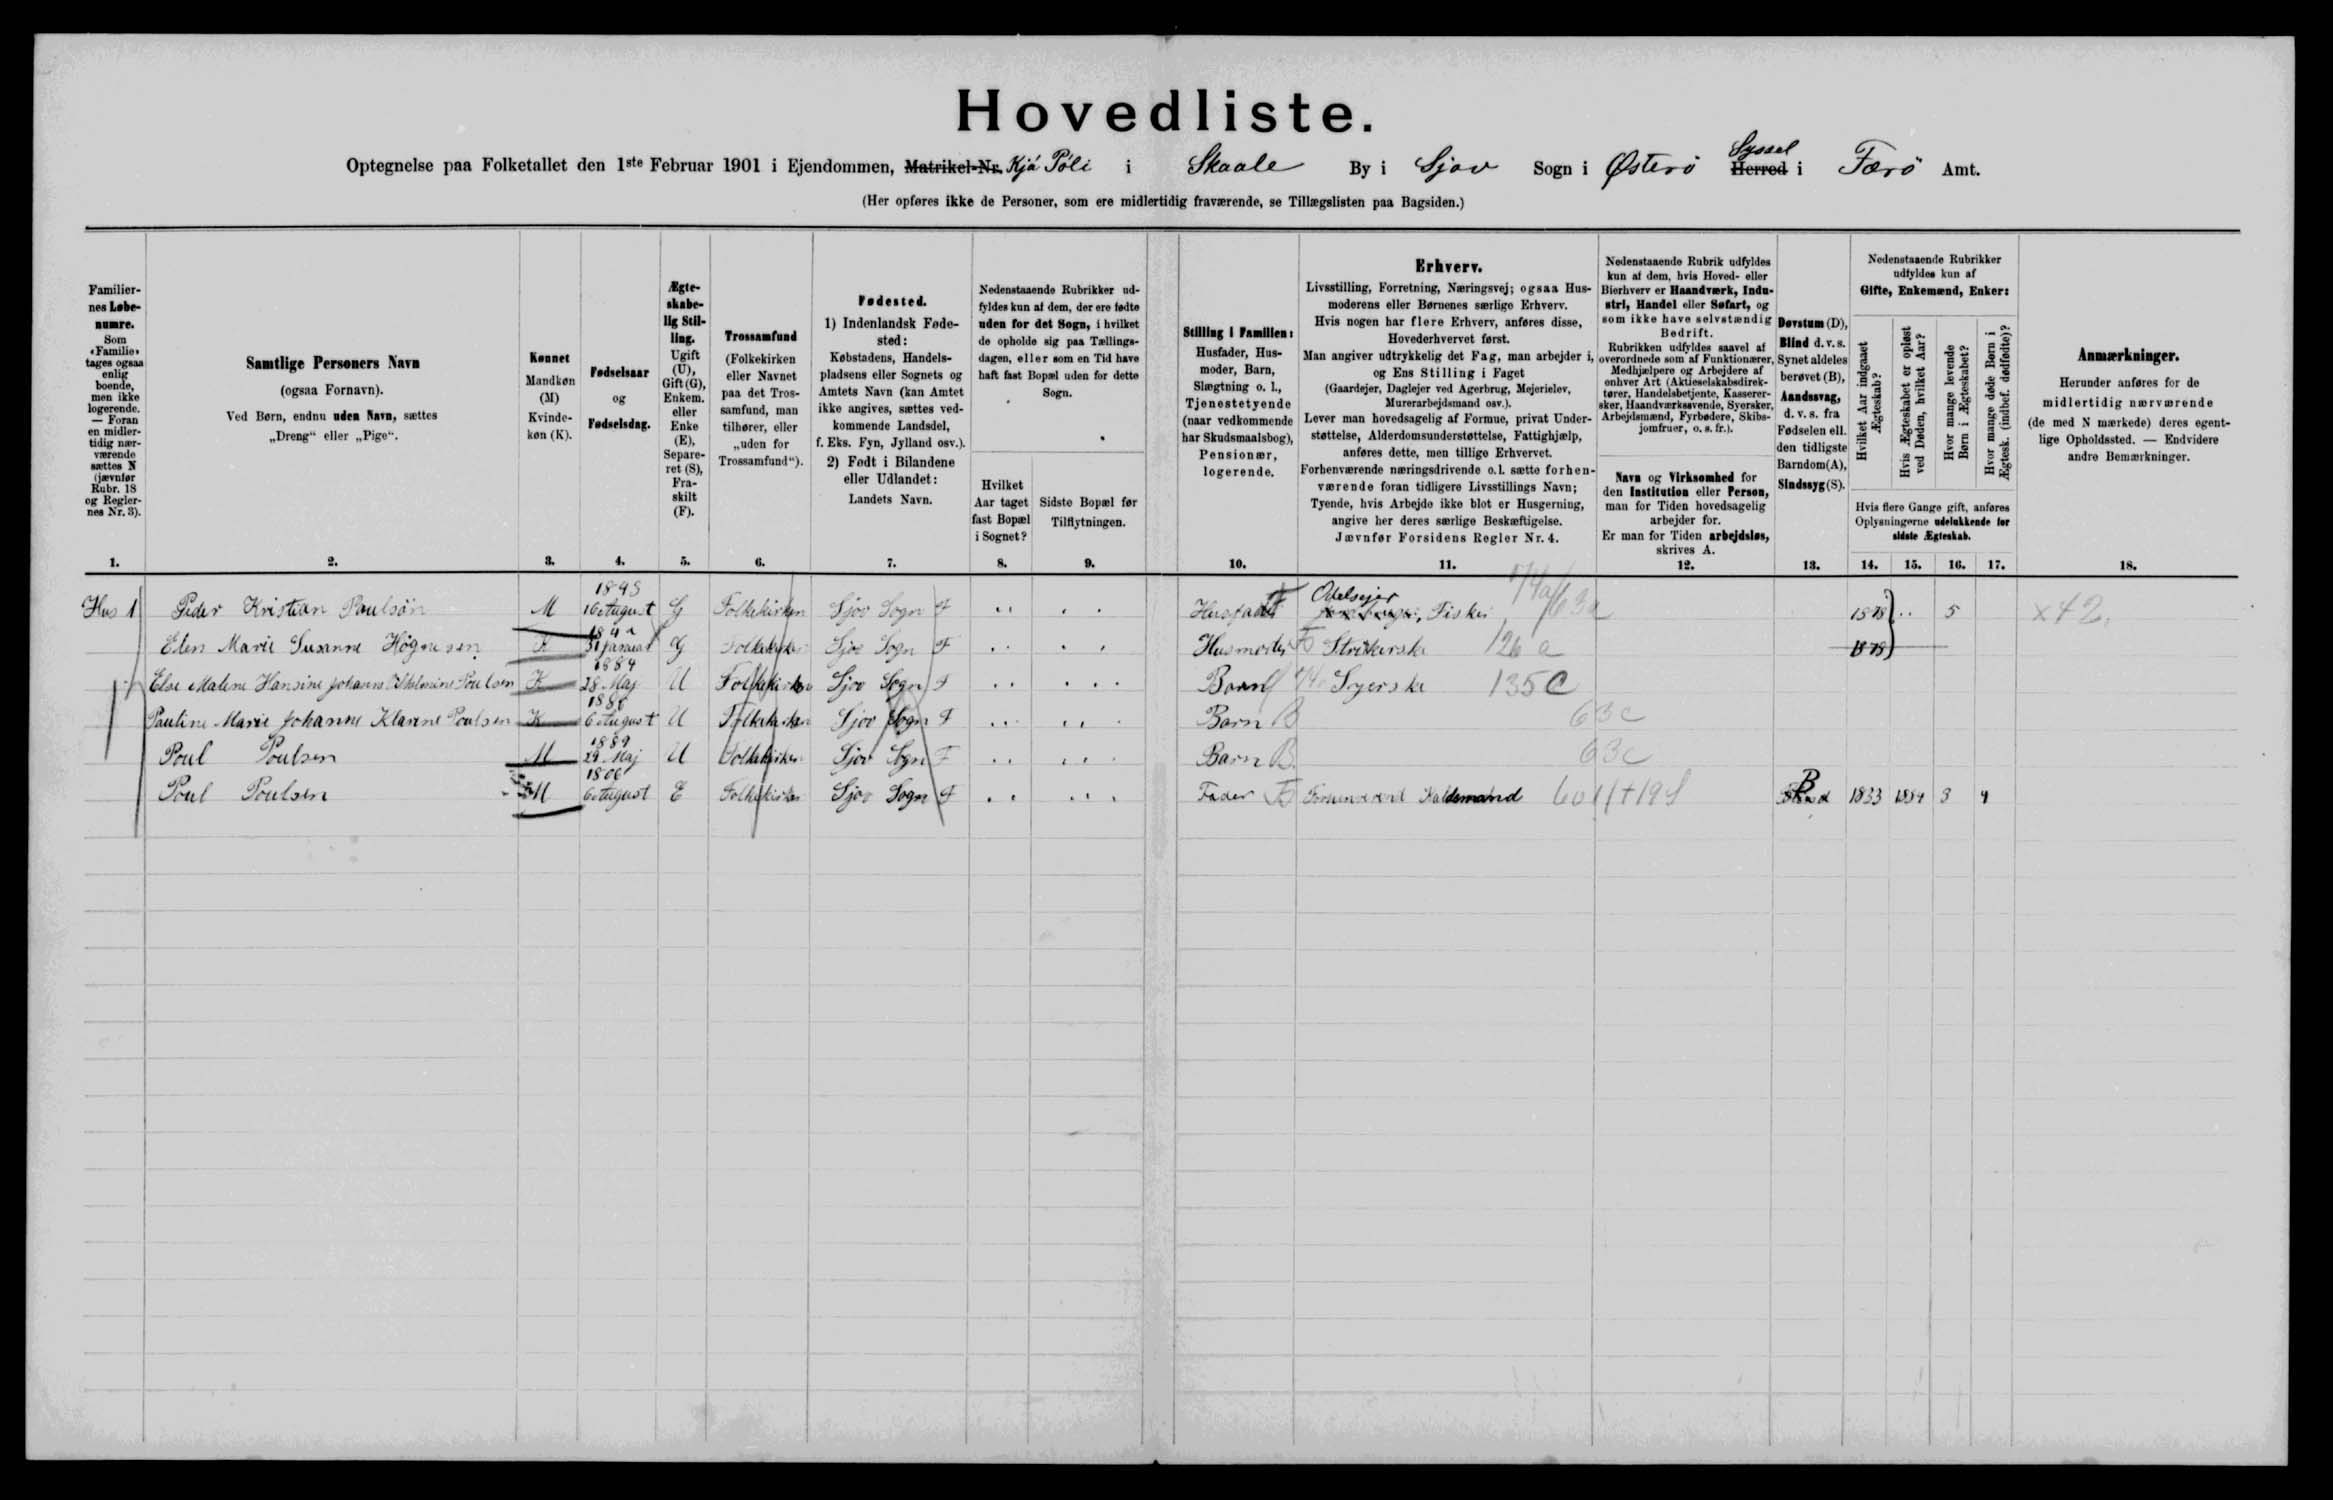 Hovedliste.
Optegnelse paa Folketallet den 1ste Februar 1901 i Ejendommen, Matrikel-Nr. Kjá Póli i Skaale By i Sjov Sogn i Østerö Herred Syssel i Færö Amt.
(Her opføres ikke de Personer, som ere midlertidig fraværende, se Tillægslisten paa Bagsiden.)
Familier-
nes Løbe-
numre.
Som
«Familie»
tages ogsaa
enlig
boende,
men ikke
logerende.
— Foran
en midler-
tidig nær-
værende
sættes N
(jævnfør
Rubr. 18
og Regler-
nes Nr. 3).
Samtlige Personers Navn
(ogsaa Fornavn).
Ved Børn, endnu uden Navn, sættes
„Dreng“ eller „Pige“.
Kønnet
Mandkøn
(M)
Kvinde-
køn (K).
Fødselsaar
og
Fødselsdag.
Ægte-
skabe-
lig Stil-
ling.
Ugift
(U),
Gift (G),
Enkem.
eller
Enke
(E),
Separe-
ret (S),
Fra-
skilt
(F).
Trossamfund
(Folkekirken
eller Navnet
paa det Tros-
samfund, man
tilhører, eller
„uden for
Trossamfund“).
Fødested.
1) Indenlandsk Føde-
sted:
Købstadens, Handels-
pladsens eller Sognets og
Amtets Navn (kan Amtet
ikke angives, sættes ved-
kommende Landsdel,
f. Eks. Fyn, Jylland osv.).
2) Født i Bilandene
eller Udlandet:
Landets Navn.
Nedenstaaende Rubrikker ud-
fyldes kun af dem, der ere fødte
uden for det Sogn, i hvilket
de opholde sig paa Tællings-
dagen, eller som en Tid have
haft fast Bopæl uden for dette
Sogn.
Hvilket
Aar taget
fast Bopæl
i Sognet?
Sidste Bopæl før
Tilflytningen.
Stilling i Familien:
Husfader, Hus-
moder, Barn,
Slægtning o. l.,
Tjenestetyende
(naar vedkommende
har Skudsmaalsbog),
Pensionær,
logerende.
Erhverv.
Livsstilling, Forretning, Næringsvej; ogsaa Hus-
moderens eller Børnenes særlige Erhverv.
Hvis nogen har flere Erhverv, anføres disse,
Hovederhvervet først.
Man angiver udtrykkelig det Fag, man arbejder i,
og Ens Stilling i Faget
(Gaardejer, Daglejer ved Agerbrug, Mejerielev,
Murerarbejdsmand osv.).
Lever man hovedsagelig af Formue, privat Under-
støttelse, Alderdomsunderstøttelse, Fattighjælp,
anføres dette, men tillige Erhvervet.
Forhenværende næringsdrivende o. l. sætte forhen-
værende foran tidligere Livsstillings Navn;
Tyende, hvis Arbejde ikke blot er Husgerning,
angive her deres særlige Beskæftigelse.
Jævnfør Forsidens Regler Nr. 4.
Nedenstaaende Rubrik udfyldes
kun af dem, hvis Hoved- eller
Bierhverv er Haandværk, Indu-
stri, Handel eller Søfart, og
som ikke have selvstændig
Bedrift.
Rubrikken udfyldes saavel af
overordnede som af Funktionærer,
Medhjælpere og Arbejdere af
enhver Art (Aktieselskabsdirek-
tører, Handelsbetjente, Kasserer-
sker, Haandværkssvende, Syersker,
Arbejdsmænd, Fyrbødere, Skibs-
jomfruer, o. s. fr.).
Navn og Virksomhed for
den Institution eller Person,
man for Tiden hovedsagelig
arbejder for.
Er man for Tiden arbejdsløs,
skrives A.
Døvstum (D),
Blind d. v. s.
Synet aldeles
berøvet (B),
Aandssvag,
d. v. s. fra
Fødselen ell.
den tidligste
Barndom (A),
Sindssyg (S).
Nedenstaaende Rubrikker
udfyldes kun af
Gifte, Enkemænd, Enker:
Hvilket Aar indgaaet
Ægteskab?
Hvis Ægteskabet er opløst
ved Døden, hvilket Aar?
Hvor mange levende
Børn i Ægteskabet?
Hvor mange døde Børn i
Ægtesk. (indbef. dødfødte)?
Hvis flere Gange gift, anføres
Oplysningerne udelukkende for
sidste Ægteskab.
Anmærkninger.
Herunder anføres for de
midlertidig nærværende
(de med N mærkede) deres egent-
lige Opholdssted. — Endvidere
andre Bemærkninger.
1. 2. 3. 4. 5. 6. 7. 8. 9. 10. 11. 12. 13. 14. 15. 16. 17. 18.
Hus 1 Peder Kristian Paulsön M 1843 16 August G Folkekirken Sjov Sogn F Husfader Odelsejer, Fisker 1878 5 x42.
Elen Marie Susanne Högnesen K 31 Januar G Folkekirken Sjov Sogn F Husmoder Strikkerske 126 a 1878
Else Malene Hansine Johanne Poulsen K 1884 28 Maj U Folkekirken Sjov Sogn F Barn Syerske 135 C
Pauline Marie Johanne Klarine Poulsen K 6 August U Folkekirken Sjov Sogn F Barn B 63c
Poul Poulsen M 1889 29 Maj U Folkekirken Sjov Sogn F Barn B 63c
Poul Poulsen M 1806 6 August E Folkekirken Sjov Sogn F Fader Forhenværend Kaldsmand B Blind 1833 1884 3 4